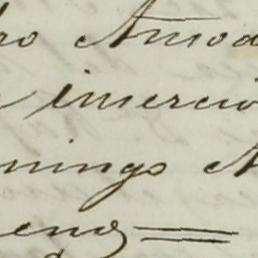 ro Amod
insercio
mingo A
eno